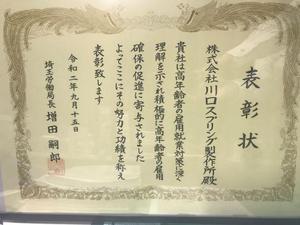 表彰状
株式会社川口スプリング製作所殿
貴社は高年齢者の雇用就業対策に深く
理解を示され積極的に高年齢者の雇用
確保の促進に寄与されました
よってここにその努力と功績を称え
表彰致します
令和二年九月十五日
埼玉労働局長 増田嗣郎